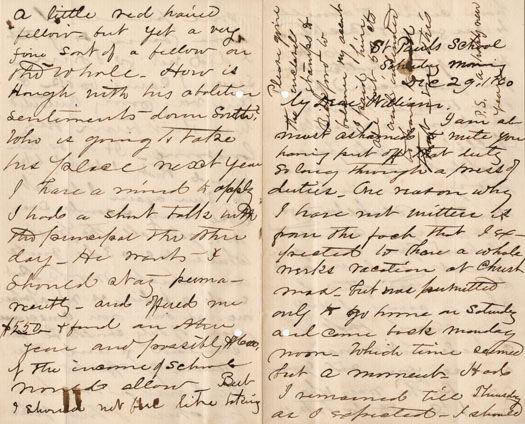 St Pauls School
Saturday Morning
Dec 29, 1860
My Dear William.
I am al
most ashamed to write you
having put off that duty
so long through a press of
duties - One reason why
I have not written is
from the fact that I ex-
pected to have a whole
weeks vacation at Christ
mas - but was permitted
only to go home on Saturday
and come back Monday
noon Which time seemed
but a moment Had
I remained till Thursday
as I expected - I should
a little red haired
fellow but yet a very
fine sort of a fellow on
the whole How is
Hough with his abolition
sentiments down South.
Who is going to take
his place next year
I have a mind to apply
I had a short talk with
the principal the other
day - He wants I
should stay perma-
nently - and offered me
& found an other
year and possibly
if the income of School
would allow - But
I should not like
Please give
stamps &
send to
P.S. a